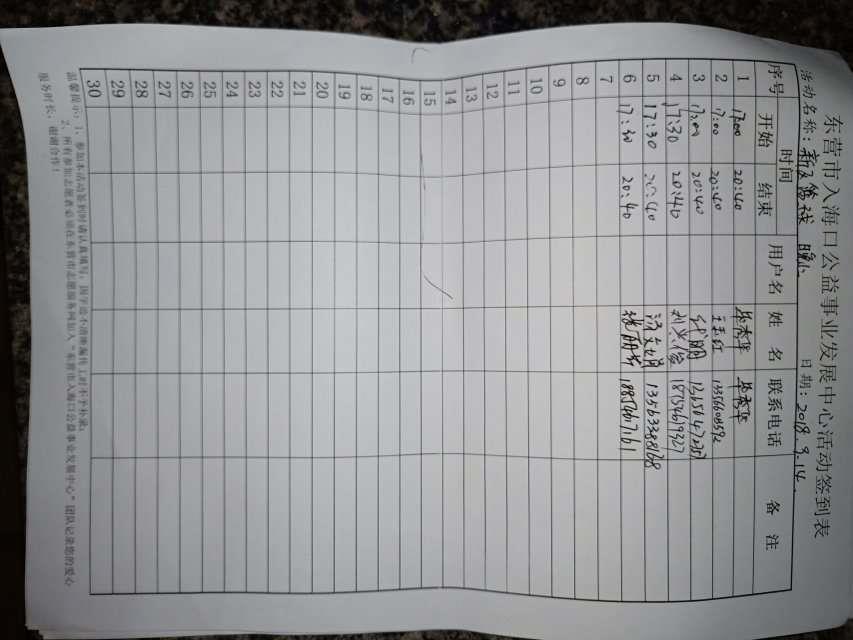 东营市入海口公益事业发展中心活动签到表
活动名称： 日期：2018.9.14
序号 时间 用户名 姓名 联系电话 备注
开始 结束
1 17:00 20:40 牟秀华 牟秀华
2 17:00 20:40 王玉红
3 17:00 20:40
4 17:30 20:40 刘兴俊 18754619327
5 17:30 20:40 13563388168
6 17:30 20:40 18854617161
7
8
9
10
11
12
13
14
15
16
17
18
19
20
21
22
23
24
25
26
27
28
29
30
温馨提示：1、参加本活动签到时请认真填写，因字迹不清断漏传工时不予补录。
2、所有参加志愿者必须在东营市志愿服务网加入“东营市入海口公益事业发展中心”团队记录您的爱心
服务时长，谢谢合作！